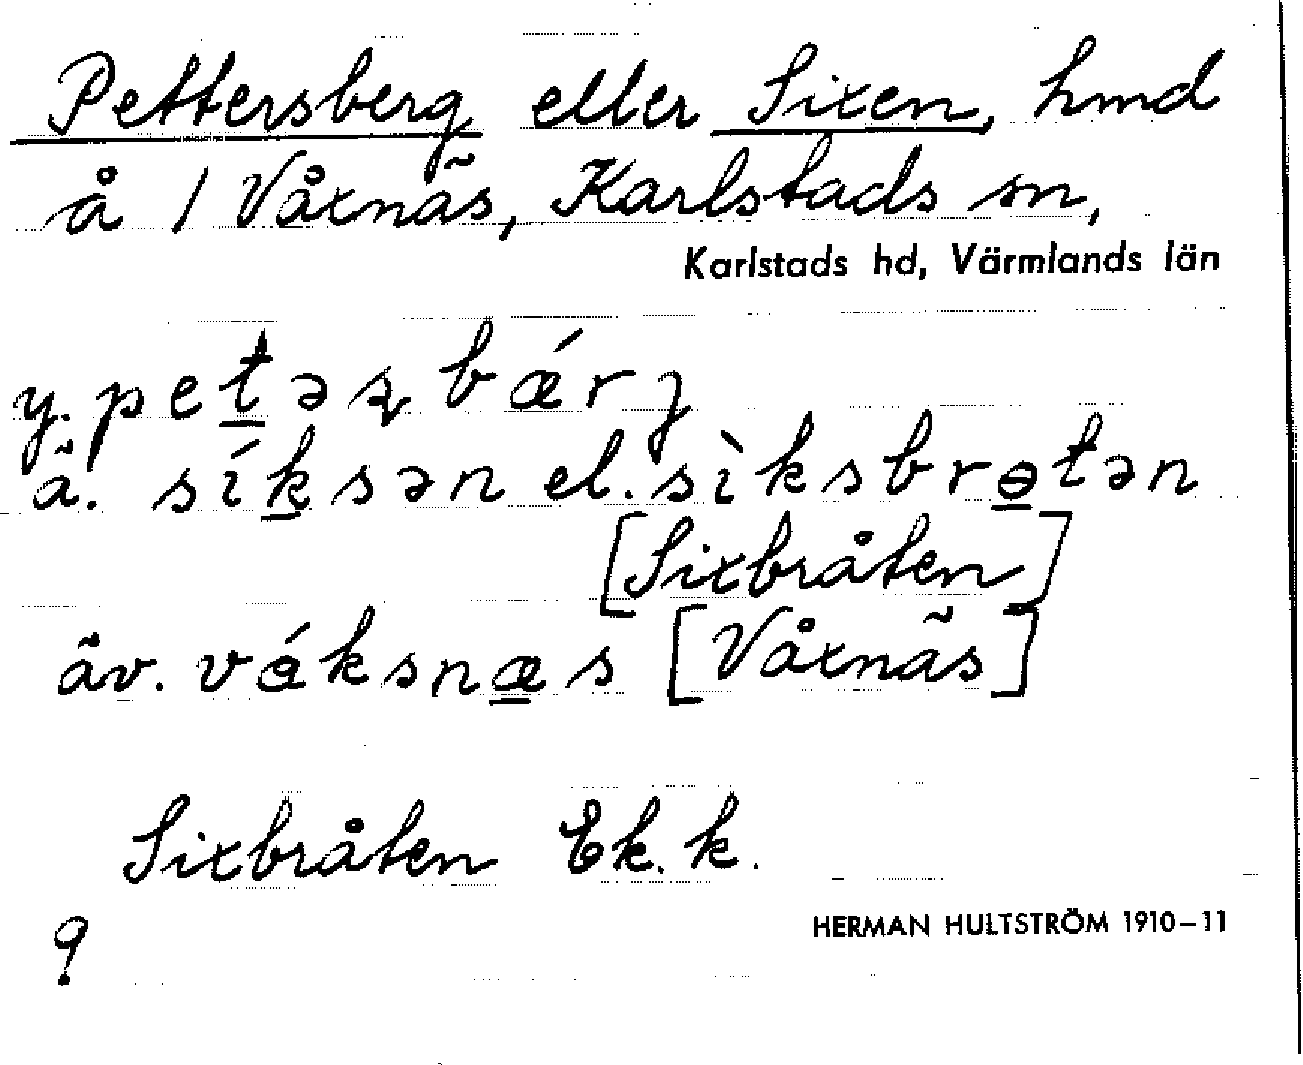 Pettersberg eller Sixen, hmd
å 1 Våxnäs, Karlstads sn,
Karlstads hd, Värmlands län
y. petəʂbǽrʒ
ä. síksən el. sìksbrɵtən
[Sixbråten]
äv. vɵ́ksnæs [Våxnäs]
Sixbråten Ek. k.
9
HERMAN HULTSTRÖM 1910–11